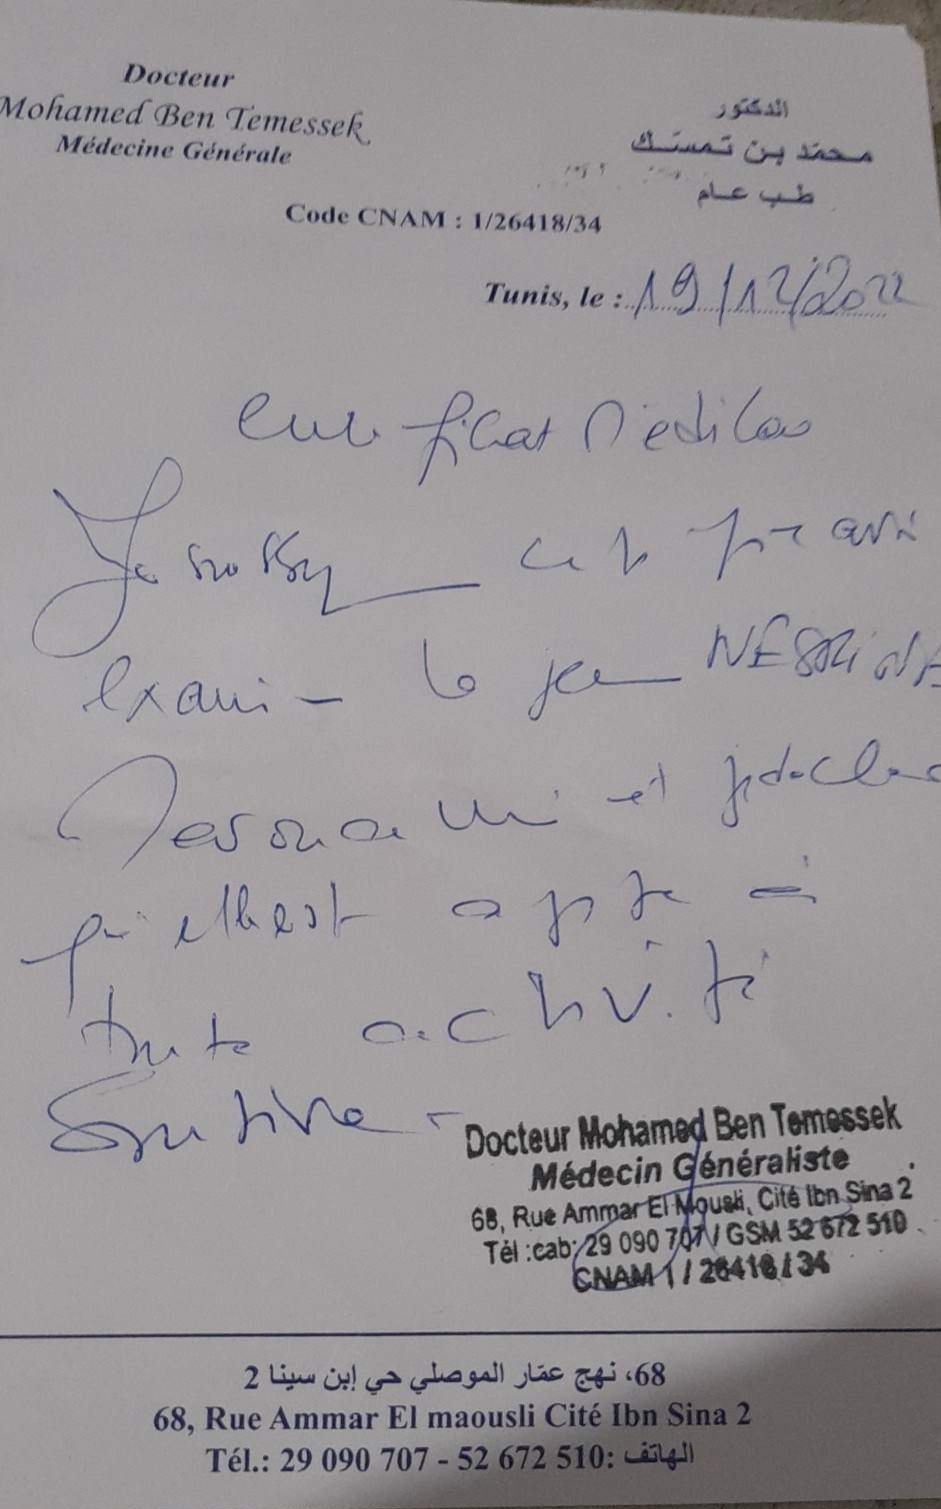 Docteur
Mohamed Ben Temessek
Médecine Générale
الدكتور
محمّد بن تمسّك
طب عام
Code CNAM : 1/26418/34
Tunis, le : 19/12/2022
Certificat Médical
Je soussigné certifie avoir
examiné le jeune
et déclare
qu'elle est apte à
toute activité
Sportive -
Docteur Mohamed Ben Temessek
Médecin Généraliste
68, Rue Ammar El Mousli, Cité Ibn Sina 2
Tél :cab: 29 090 707 / GSM 52 672 510
CNAM 1 / 26418 / 34
68، نهج عمّار الموصلي حي إبن سينا 2
68, Rue Ammar El maousli Cité Ibn Sina 2
Tél.: 29 090 707 - 52 672 510: الهاتف